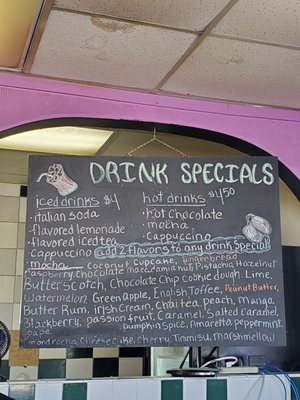 DRINK SPECIALS
iced drinks $4
• italian soda
• flavored lemonade
• flavored iced tea
• Cappuccino
• mocha
hot drinks $4.50
• hot chocolate
• mocha
• Cappuccino
add 2 flavors to any drink Special!
Coconut, Cupcake, Gingerbread
raspberry, Chocolate macadamia nut, Pistachio, Hazelnut
Butterscotch, Chocolate Chip Cookie dough, Lime,
Watermelon, Green apple, English Toffee, Peanut Butter,
Butter Rum, irish Cream, Chai tea, peach, mango,
Blackberry, passion fruit, Caramel, Salted Caramel,
Pumpkin Spice, Amaretto, peppermint,
Cheese Cake, Cherry, Tiramisu, marshmellow